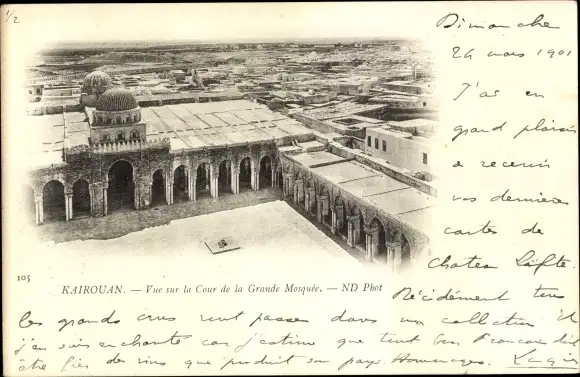 1/2
Dimanche
24 mars 1901
J'ai eu
grand plaisir
a recevoir
vos dernières
cartes de
Chateau
105
KAIROUAN. — Vue sur la Cour de la Grande Mosquée. — ND Phot
Décidément tous
les grands crus vont passer dans ma collection Et
j'en suis enchanté car j'estime que tout bon Français doit
être fier des vins que produit son pays. Hommages.